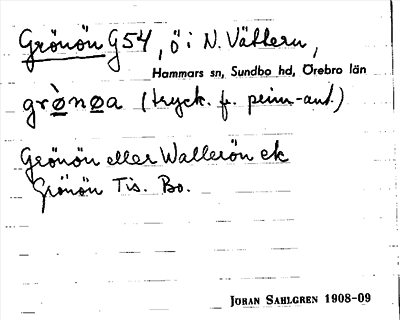 Grönön G54, ö i N. Vättern,
Hammars sn, Sundbo hd, Örebro län
grö̀nøa (tryck. fr. prim-ant.)
Grönön eller Wallerön ek
Grönön Tis. Bo.
JOHAN SAHLGREN 1908-09